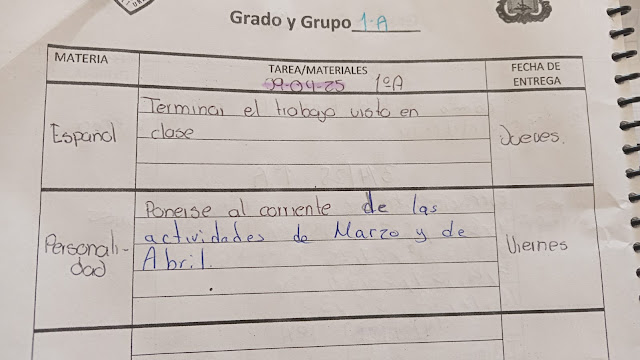 Grado y Grupo 1-A
MATERIA
TAREA/MATERIALES
FECHA DE
ENTREGA
09-04-25 1ºA
Español
Terminar el trabajo visto en
clase
Jueves.
Personali-
dad
Ponerse al corriente de las
actividades de Marzo y de
Abril.
Viernes